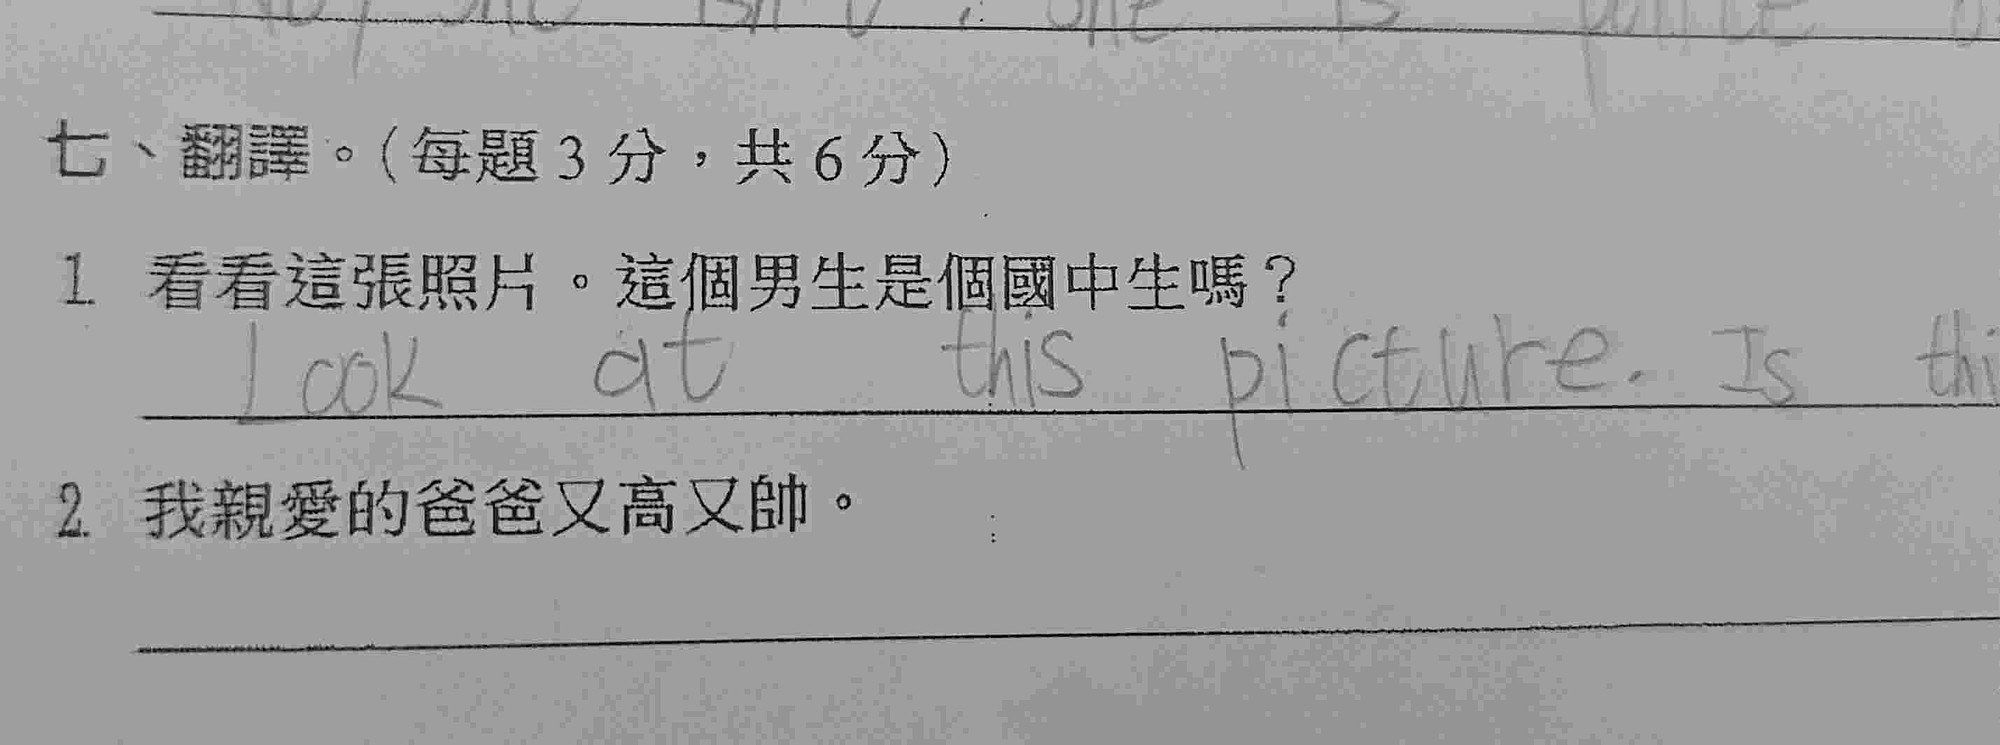 七、翻譯。(每題3分，共6分)
1. 看看這張照片。這個男生是個國中生嗎？
Look at this picture. Is thi
2. 我親愛的爸爸又高又帥。